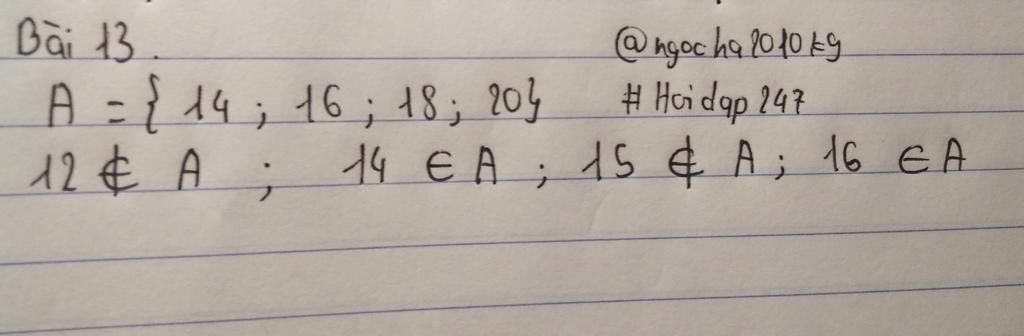 Bài 13.
@ngocha2010kg
A = { 14 ; 16 ; 18 ; 20}
# Hoidap 247
12 ∉ A ; 14 ∈ A ; 15 ∉ A ; 16 ∈ A